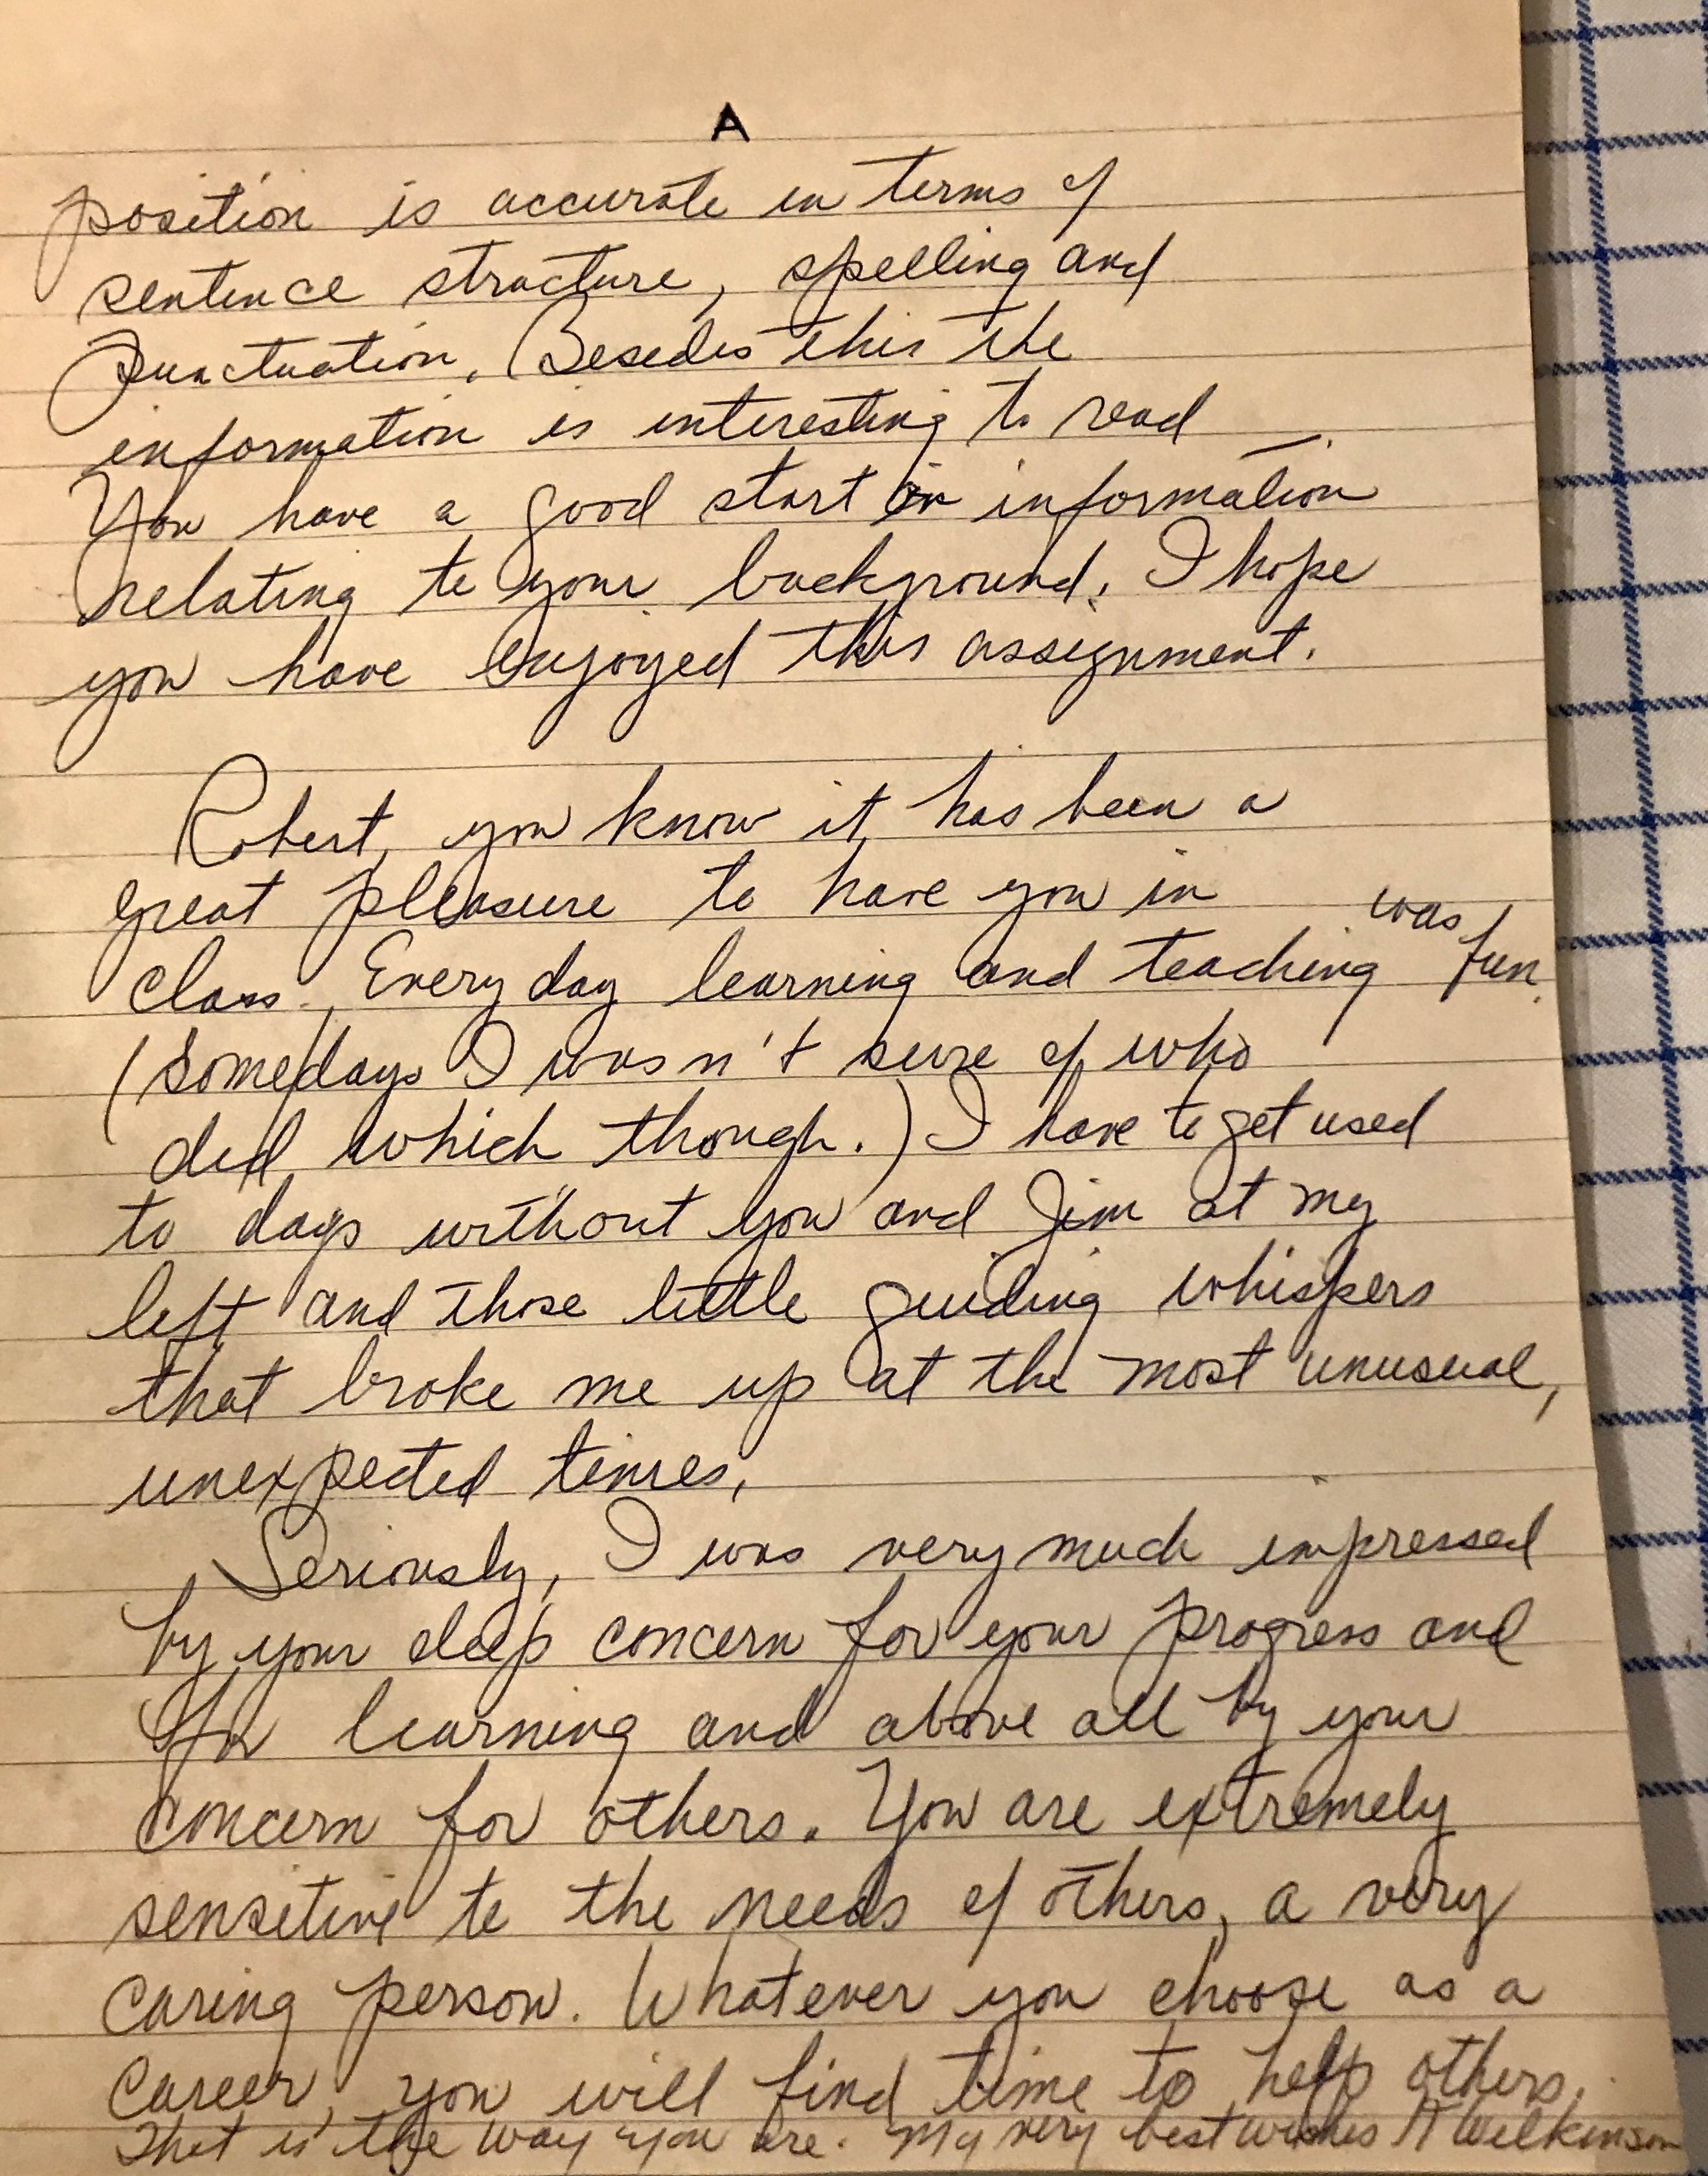 A
position is accurate in terms of
sentence structure, spelling and
Punctuation. Besides this the
information is interesting to read —.
You have a good start in information
relating to your background. I hope
you have enjoyed this assignment.
Robert, you know it has been a
great pleasure to have you in
class. Every day learning and teaching was fun.
(Somedays I wasn't sure of who
did which though.) I have to get used
to days without you and Jim at my
left and those little guiding whispers
that broke me up at the most unusual,
unexpected times.
Seriously, I was very much impressed
by your deep concern for your progress and
in learning and above all by your
concern for others. You are extremely
sensitive to the needs of others, a very
caring person. Whatever you choose as a
career, you will find time to help others.
That is the way you are. My very best wishes Wilkinson